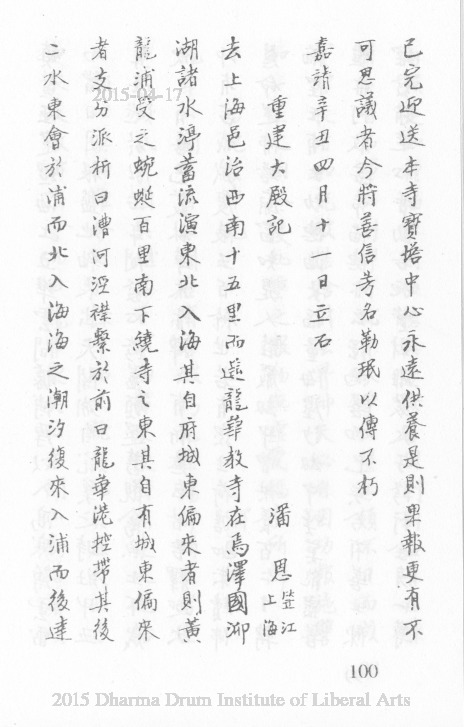 已完迎送本寺寶塔中心永遠供養是則果報更有不
可思議者今將善信芳名勒珉以傳不朽
嘉靖辛丑四月十一日立石
重建大殿記
潘恩 笠江 上海
去上海邑治西南十五里而遥龍華教寺在焉澤國泖
湖諸水渟蓄流演東北入海其自府城東偏來者則黃
龍浦受之蜿蜒百里南下繞寺之東其自有城東偏來
者支分派析曰漕河涇襟繫於前曰龍華港控帶其後
二水東會於浦而北入海海之潮汐復來入浦而後達
100
2015-04-17
2015 Dharma Drum Institute of Liberal Arts